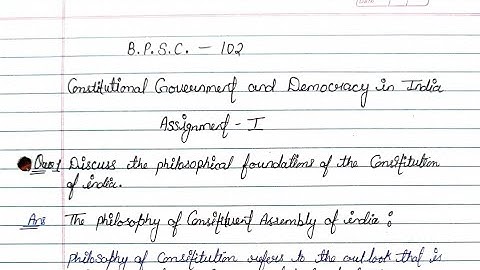 B.P.S.C. - 102
Constitutional Government and Democracy in India
Assignment - I
Ques1 Discuss the philosophical foundations of the Constitution
of india.
Ans The philosophy of Constituent Assembly of india :
philosophy of Constitution refers to the outlook that is